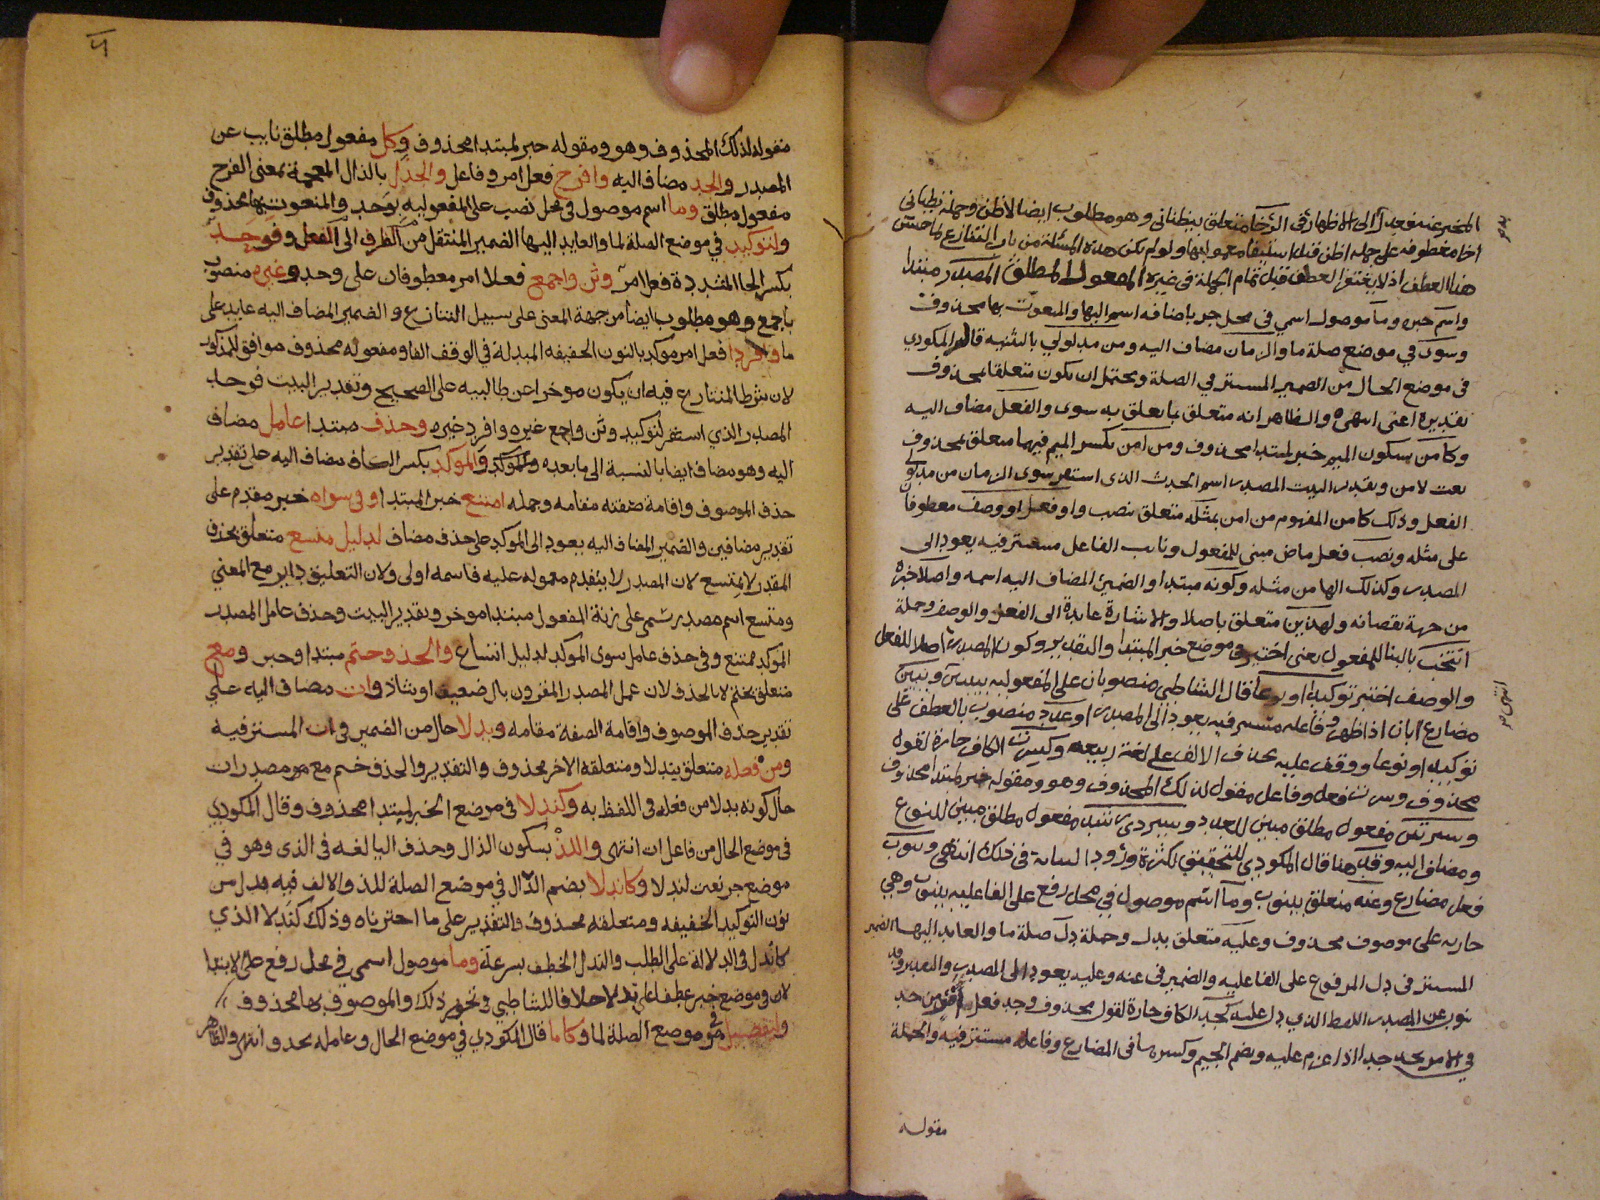 المخبر عنه معدل الى الاظهار في الرخا متعلق بيظناني وهو مطلوب ايضا لاظن وجملة يظناني
اخا معطوفة على جملة اظن قبل استيفا معمولها ولو لم تكن هذه المسئلة من باب التنازع لما حسن
هذا العطف اذ لا يغتفر العطف قبل تمام الجملة في غيره المفعول المطلق المصدر مبتدا
واسم خبره وما موصول اسمي في محل جر باضافة اسم اليها والمنعوت بها محذوف
وسوى في موضع صلة ما والزمان مضاف اليه ومن مدلولي بالتثنيه قال المكودي
في موضع الحال من الضمير المستتر في الصلة ويحتمل ان يكون متعلقا بمحذوف
تقديره اعني انتهى والظاهر انه متعلق بما تعلق به سوى والفعل مضاف اليه
وكامن بسكون الميم خبر لمبتدا محذوف ومن امن بكسر الميم فيهما متعلق بمحذوف
نعت لامن وتقدير البيت المصدر اسم الحدث الذي استقر سوى الزمان من مدلولي
الفعل وذلك كامن المفهوم من امن بمثله متعلق بنصب واو فعل او وصف معطوفا
على مثله ونصب فعل ماض مبني للمفعول ونائب الفاعل مستتر فيه يعود الى
المصدر وكذلك الها من مثله وكونه مبتدا والضمير المضاف اليه اسمه واصلا خبره
من جهة نقصانه ولهذين متعلق باصلا والاشارة عايدة الى الفعل والوصف وجملة
انتخب بالبنا للمفعول بمعنى اختير في موضع خبر المبتدا والتقدير وكون المصدر اصلا للفعل
والوصف اختير توكيدا او نوعا قال الشاطبي منصوبان على المفعولية بيبين ويبين
مضارع ابان اذا ظهر وفاعله مستتر فيه يعود الى المصدر او عدد منصوب بالعطف على
توكيدا او نوعا ووقف عليه بحذف الالف على لغة ربيعه وكسرت الكاف جارة لقول
محذوف وسرت فعل وفاعل مقول لذلك المحذوف وهو ومقوله خبر لمبتدا محذوف
وسيرتين مفعول مطلق مبين للعدد وسير ذي رشد مفعول مطلق مبين للنوع
ومضاف اليه وقد هنا قال المكودي للتحقيق لكثرة ورود النيابة في ذلك انتهى وينوب
فعل مضارع وعنه متعلق بينوب وما اسم موصول في محل رفع على الفاعلية بينوب وهي
جارية على موصوف محذوف وعليه متعلق بدل وجملة دل صلة ما والعايد اليها الضمير
المستتر في دل المرفوع على الفاعلية والضمير في عنه وعليه يعود الى المصدر والتقدير وقد
ينوب عن المصدر اللفظ الذي دل عليه كجد الكاف جارة لقول محذوف وجد فعل امر من جد
في الامر يجد جدا اذا عزم عليه وبضم الجيم وكسرها في المضارع وفاعله مستتر فيه والجملة
مقولة
مقوله لذلك المحذوف وهو ومقوله خبر لمبتدا محذوف وكل مفعول مطلق نايب عن
المصدر والجد مضاف اليه وافرح فعل امر وفاعل والجذل بالذال المعجمة بمعنى الفرح
مفعول مطلق وما اسم موصول في محل نصب على المفعولية بوحد والمنعوت بها محذوف
ولتوكيد في موضع الصلة لما والعايد اليها الضمير المنتقل من الظرف الى الفعل وفوحد
بكسر الحا المشددة فعل امر وثن واجمع فعلا امر معطوفان على وحد وغيره منصوب
باجمع وهو مطلوب ايضا من جهة المعنى على سبيل التنازع والضمير المضاف اليه عايد على
ما وافردا فعل امر موكد بالنون الخفيفه المبدلة في الوقف الفا ومفعوله محذوف موافق للمذكور
لان شرط المتنازع فيه ان يكون موخرا عن طالبيه على الصحيح وتقدير البيت فوحد
المصدر الذي استقر لتوكيد وثن واجمع غيره وافرد غيره وحذف مبتدا عامل مضاف
اليه وهو مضاف ايضا بالنسبة الى ما بعده والموكد بكسر الكاف مضاف اليه على تقدير
حذف الموصوف واقامة صفته مقامه وجمله امتنع خبر المبتدا وفي سواه خبر مقدم على
تقدير مضافين والضمير المضاف اليه يعود الى الموكد على حذف مضاف لدليل متسع متعلق بمحذوف
المقدر لا بمتسع لان المصدر لا يتقدم معموله عليه فاسمه اولى ولان التعليق داير مع المعنى
ومتسع اسم مصدر سمي على زنة المفعول مبتدا موخر وتقدير البيت وحذف عامل المصدر
الموكد ممتنع وفي حذف عامل سوى الموكد لدليل اتساع والحذف حتم مبتدا وخبر ومع
متعلق بحتم لا بالحذف لان عمل المصدر المقرون بال ضعيف او شاذ وات مضاف اليه على
تقدير حذف الموصوف واقامة الصفة مقامه وبدلا حال من الضمير في ات المستتر فيه
ومن فعله متعلق ببدلا ومتعلقه الاخر محذوف والتقدير والحذف حتم مع مصدر ات
حال كونه بدلا من فعله في اللفظ به وكندلا في موضع الخبر لمبتدا محذوف وقال المكودي
في موضع الحال من فاعل ات انتهى واللذ بسكون الذال وحذف اليا لغة في الذي وهو في
موضع جر نعت لندلا وكاندلا بضم الدال في موضع الصلة للذ والالف فيه بدل من
نون التوكيد الخفيفه ومتعلقه محذوف والتقدير على ما اخترناه وذلك كندلا الذي
كاندل في الدلالة على الطلب والندل الخطف بسرعة وما موصول اسمي في محل رفع على الابتدا
لا في موضع خبر عطفا على ندلا خلافا للشاطبي وتجويز ذلك والموصوف بها محذوف
ولتفصيل في موضع الصلة لما وكاما قال المكودي في موضع الحال وعامله محذوف انتهى والظاهر